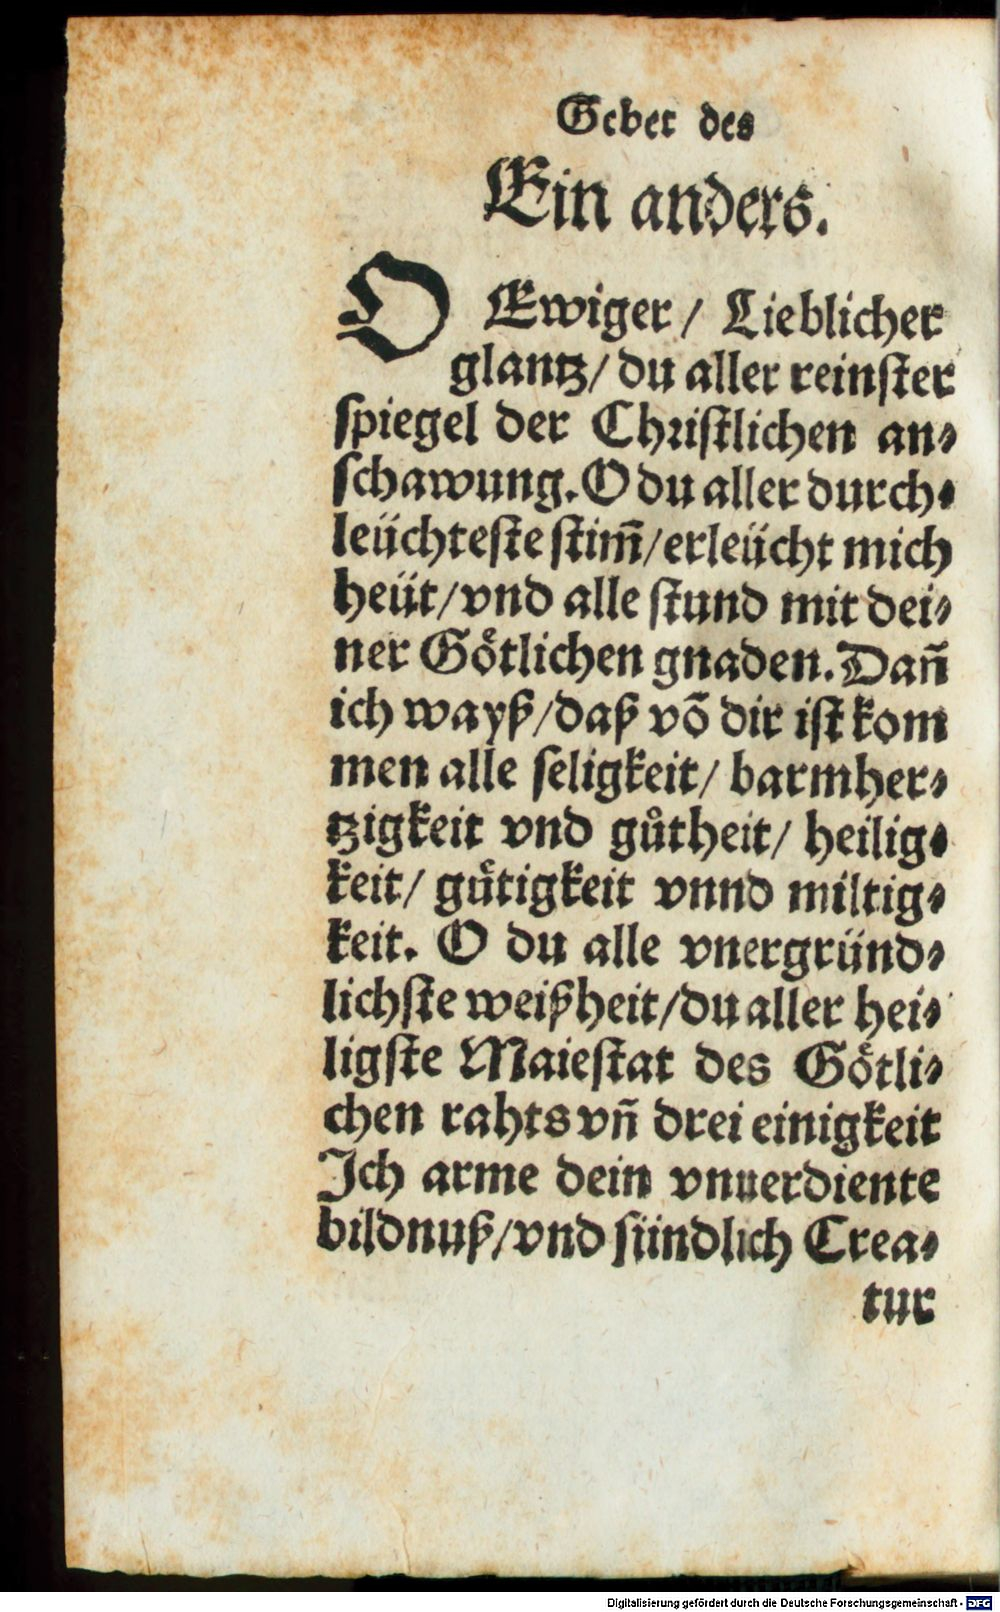 Gebet des
Ein anders.
O Ewiger / Lieblicher
glantz / du aller reinster
spiegel der Christlichen an⸗
schawung. O du aller durch⸗
leüchteste stim̃ / erleücht mich
heüt / vnd alle stund mit dei⸗
ner Goͤtlichen gnaden. Dañ
ich wayß / daß võ dir ist kom
men alle seligkeit / barmher⸗
tzigkeit vnd guͦtheit / heilig⸗
keit / guͤtigkeit vnnd miltig⸗
keit. O du alle vnergründ⸗
lichste weißheit / du aller hei⸗
ligste Maiestat des Goͤtli⸗
chen rahts vñ drei einigkeit
Ich arme dein vnuerdiente
bildnuß / vnd sündlich Crea⸗
tur
Digitalisierung gefördert durch die Deutsche Forschungsgemeinschaft - DFG